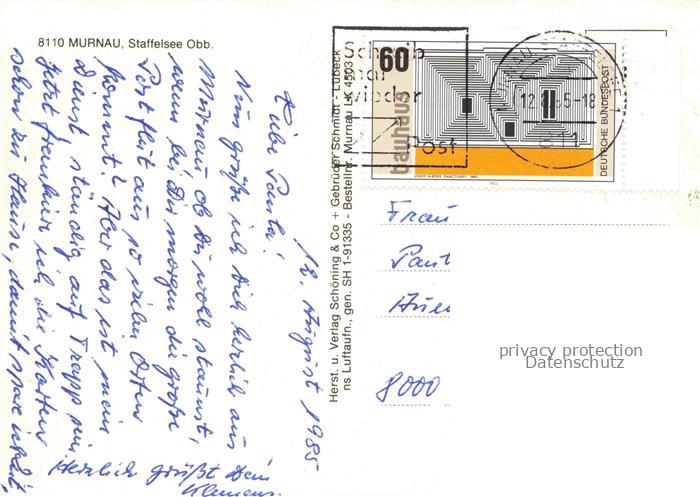 8110 MURNAU, Staffelsee Obb.
12. August 1985
Liebe Paula!
Nun grüße ich Dich herzlich aus
Murnau ob Du wohl staunst,
wenn bei Dir morgen die große
Postflut aus so vielen Orten
kommt? Aber das ist mein
Dienst ständig auf Trapp sein.
Jetzt frankier ich die Karten
schon zu Hause, damit spare ich Zeit.
Herzlich grüßt Dein
Klemens.
Herst. u. Verlag Schöning & Co + Gebrüder Schmidt - Lübeck
ns Luftaufn., gen. SH 1-91335 - Bestellnr. Murnau LK 4503
Schreib
mal
wieder
Post
60
bauhaus
DEUTSCHE BUNDESPOST
JOSEF ALBERS SANCTUARY 1942
1983
12.8.85-18
Frau
8000
privacy protection
Datenschutz